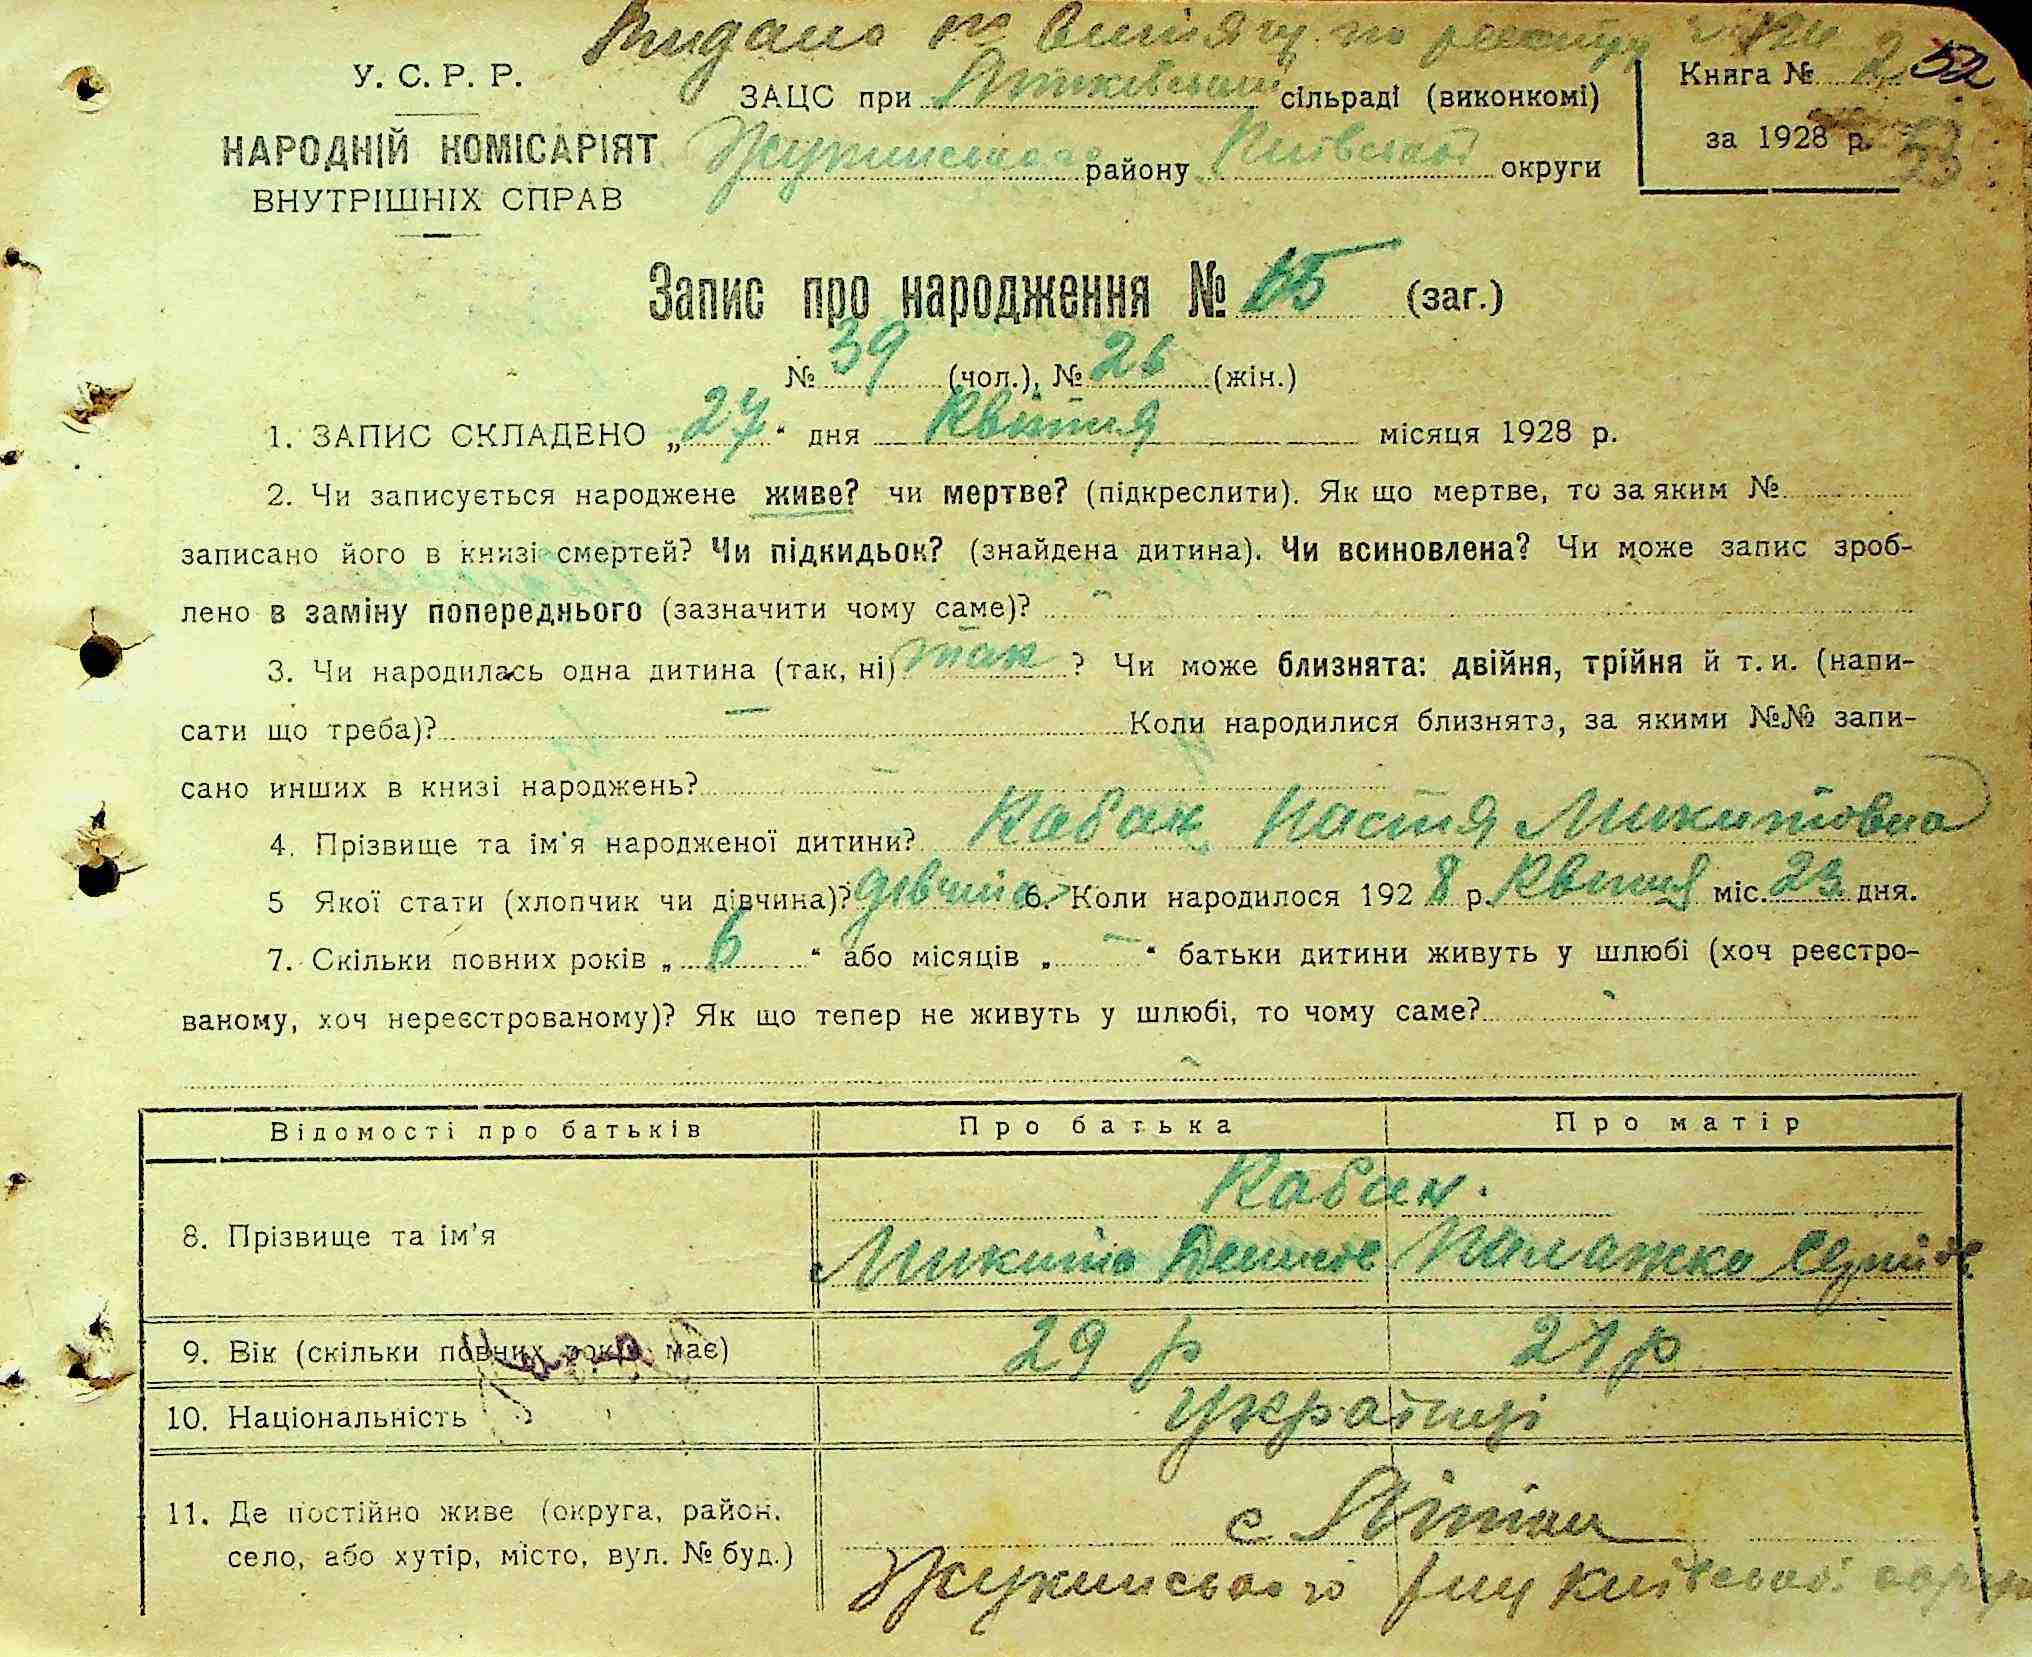 Видано по витягу по реєстру
У. С. Р. Р.
НАРОДНІЙ КОМІСАРІЯТ
ВНУТРІШНІХ СПРАВ
ЗАЦС при Літківській сільраді (виконкомі)
Жукинського району Київської округи
Книга № 52
за 1928 р.
Запис про народження № 65 (заг.)
№ 39 (чол.), № 26 (жін.)
1. ЗАПИС СКЛАДЕНО „27“ дня Квітня місяця 1928 р.
2. Чи записується народжене живе? чи мертве? (підкреслити). Як що мертве, то за яким №
записано його в книзі смертей? Чи підкидьок? (знайдена дитина). Чи всиновлена? Чи може запис зроб-
лено в заміну попереднього (зазначити чому саме)? -
3. Чи народилась одна дитина (так, ні) так ? Чи може близнята: двійня, трійня й т. и. (напи-
сати що треба)? - Коли народилися близнятэ, за якими №№ запи-
сано инших в книзі народжень? -
4. Прізвище та ім'я народженої дитини? Кабак Настя Микитовна
5 Якої стати (хлопчик чи дівчина)? дівчина 6. Коли народилося 1928 р. Квітня міс. 23 дня.
7. Скільки повних років „6“ або місяців „-“ батьки дитини живуть у шлюбі (хоч реєстро-
ваному, хоч нереєстрованому)? Як що тепер не живуть у шлюбі, то чому саме? -
-
Відомості про батьків Про батька Про матір
8. Прізвище та ім'я Кабак.
Микита Денисов Палажка
9. Вік (скільки повних років має) 29 р 27 р
10. Національність Українці
11. Де постійно живе (округа, район, с Літки
село, або хутір, місто, вул. № буд.) Жукинського р-ну Київської округи